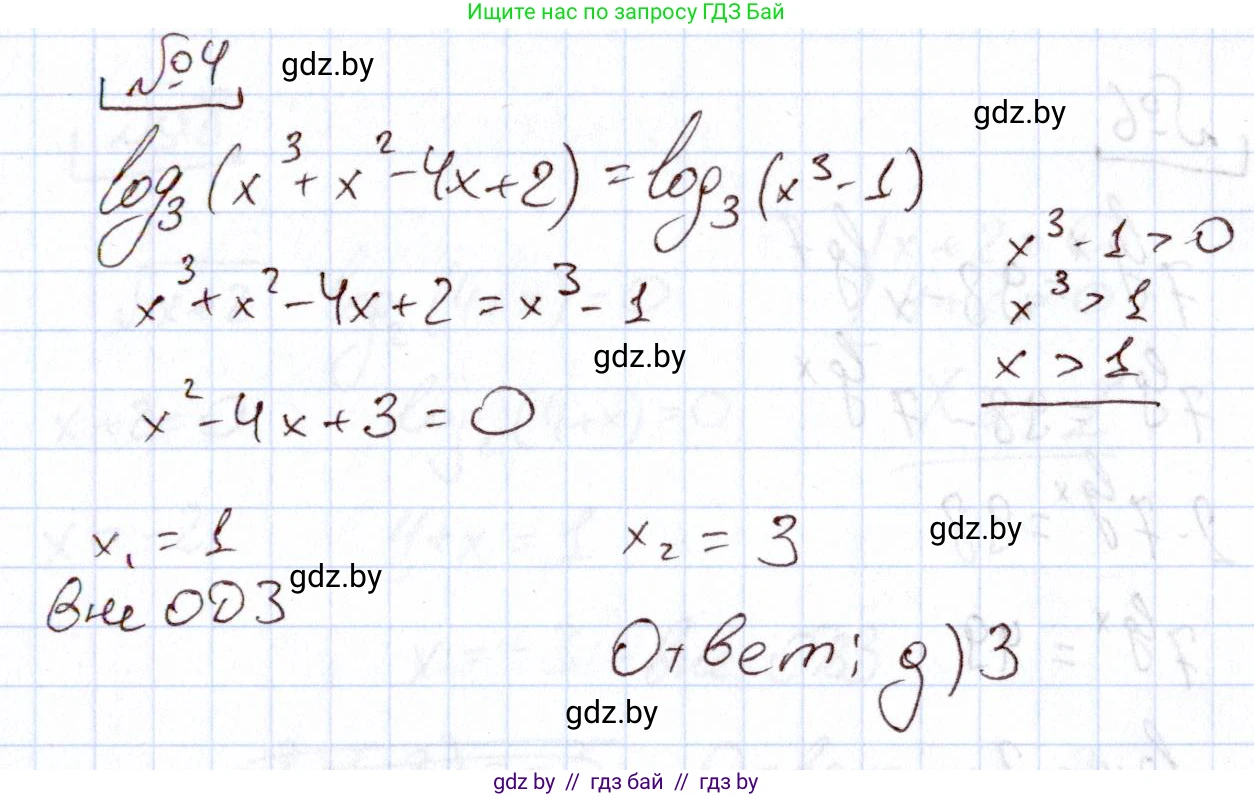 Ищите нас по запросу ГДЗ Бай
№4 gdz.by
gdz.by
log₃(x³ + x² - 4x + 2) = log₃(x³ - 1)
x³ - 1 > 0
x³ + x² - 4x + 2 = x³ - 1
x³ > 1
gdz.by
x > 1
x² - 4x + 3 = 0
x₁ = 1
x₂ = 3
gdz.by
вне ОДЗ
gdz.by
Ответ: д) 3
gdz.by
gdz.by // гдз бай // гдз by